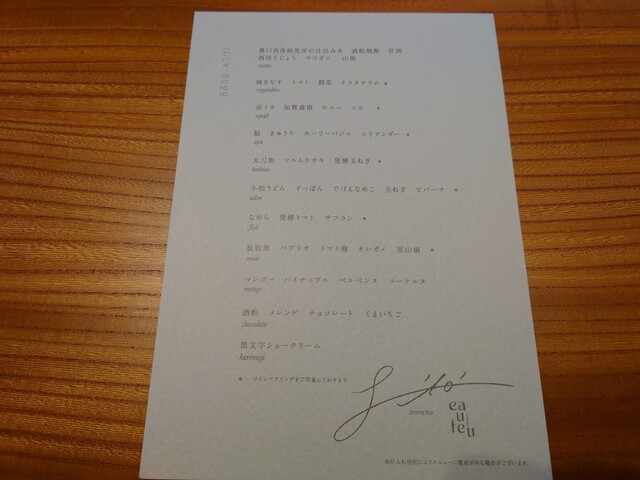 農口尚彦研究所の仕込み水　酒粕焼酎　甘酒
西田どじょう　サワガニ　山椒
water
焼きなす　トマト　茴香　ナスタチウム ＊
vegetables
赤イカ　加賀蓮根　ホエー　ニラ ＊
squid
鮎　きゅうり　ホーリーバジル　コリアンダー ＊
ayu
太刀魚　マルムラオキ　発酵玉ねぎ ＊
tachiuo
小松うどん　すっぽん　でけえなめこ　玉ねぎ　ピパーチ ＊
udon
なめら　発酵トマト　サフラン ＊
fish
放牧豚　パプリカ　トマト麹　オレガノ　実山椒 ＊
meat
マンゴー　パイナップル　ベルベンヌ　ソーテルヌ
mango
酒粕　メレンゲ　チョコレート　くまいちご
chocolate
黒文字シュークリーム
kuromoji
＊ーワインペアリングをご用意しております
Shota Itoi
eauteu
仕入れ状況によりメニューに変更がある場合がございます。